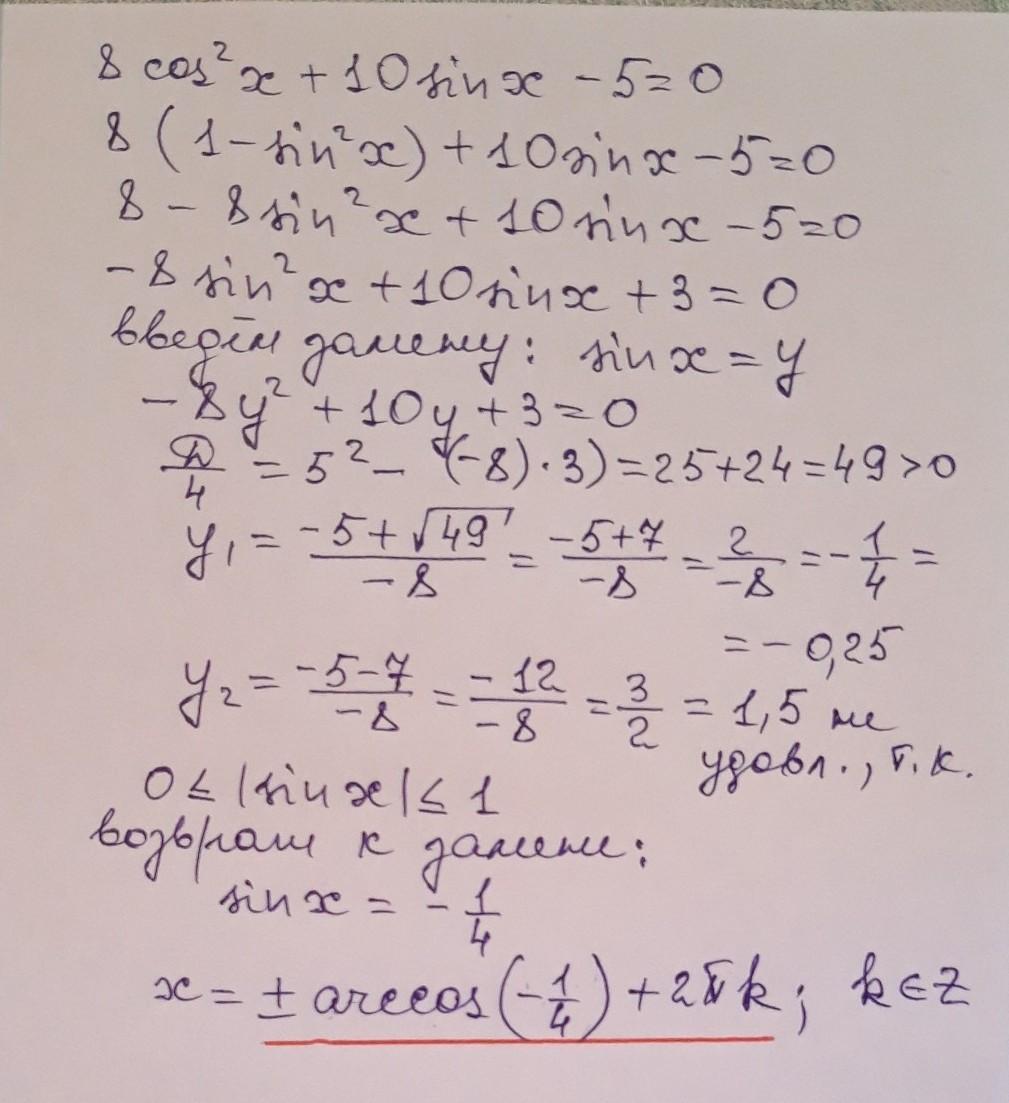 8 cos²x + 10 sin x - 5 = 0
8 (1 - sin²x) + 10 sin x - 5 = 0
8 - 8 sin²x + 10 sin x - 5 = 0
-8 sin²x + 10 sin x + 3 = 0
введём замену: sin x = y
-8y² + 10y + 3 = 0
D/4 = 5² - (-8)·3) = 25 + 24 = 49 > 0
y₁ = (-5 + √49)/(-8) = (-5+7)/(-8) = 2/(-8) = -1/4 =
= -0,25
y₂ = (-5-7)/(-8) = (-12)/(-8) = 3/2 = 1,5 не
удовл., т.к.
0 ≤ |sin x| ≤ 1
возврат к замене:
sin x = -1/4
x = ± arccos(-1/4) + 2πk; k∈Z